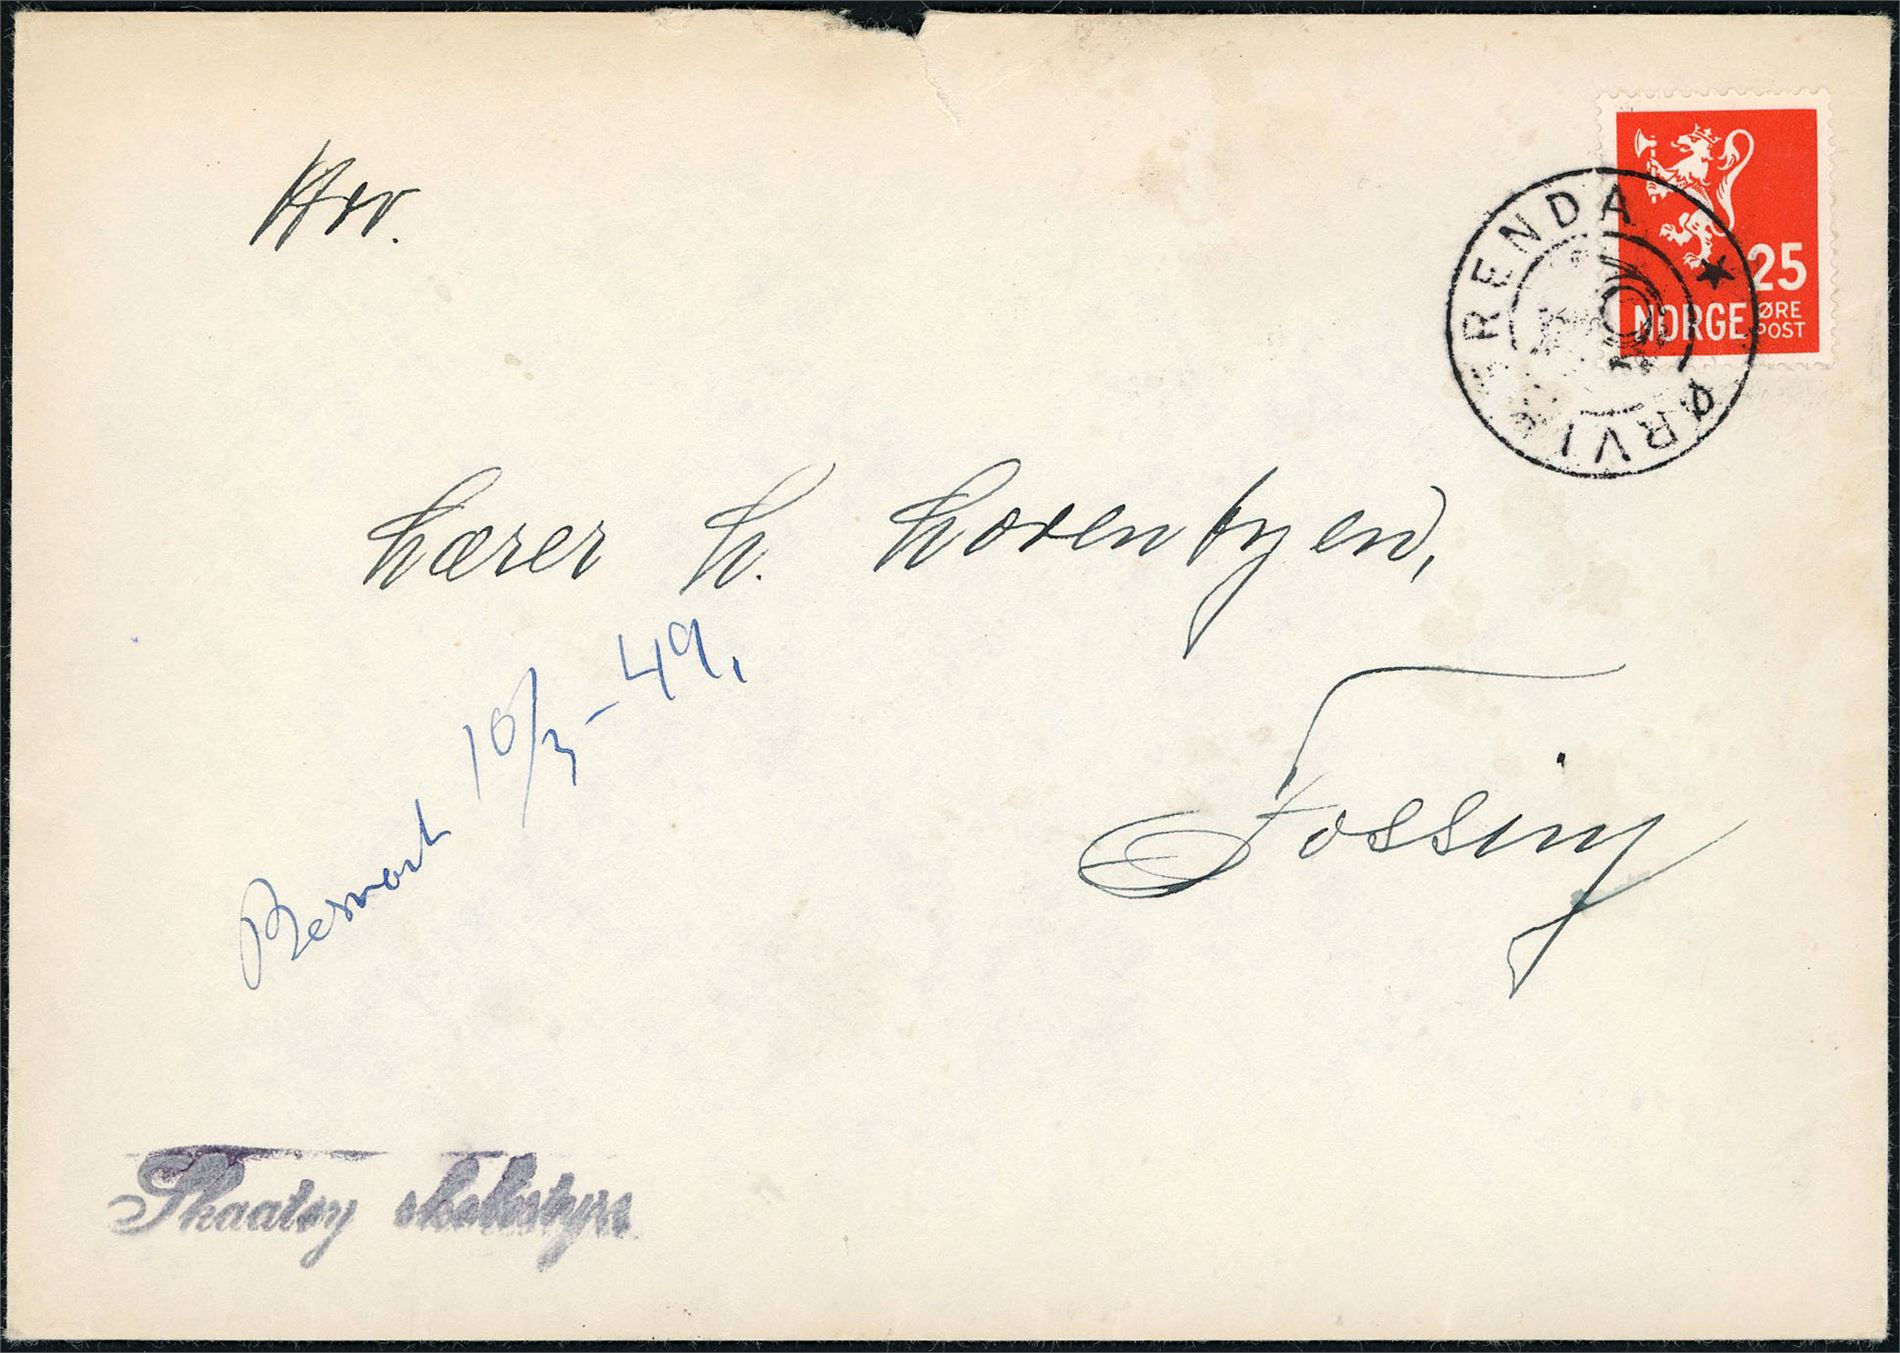 Hrr.
25
NORGE ØRE POST
ØRVIK
RENDAL
Lærer L. Lovenbyen,
Fossing
Besvart 10/3-49.
Skaatøy skolestyre